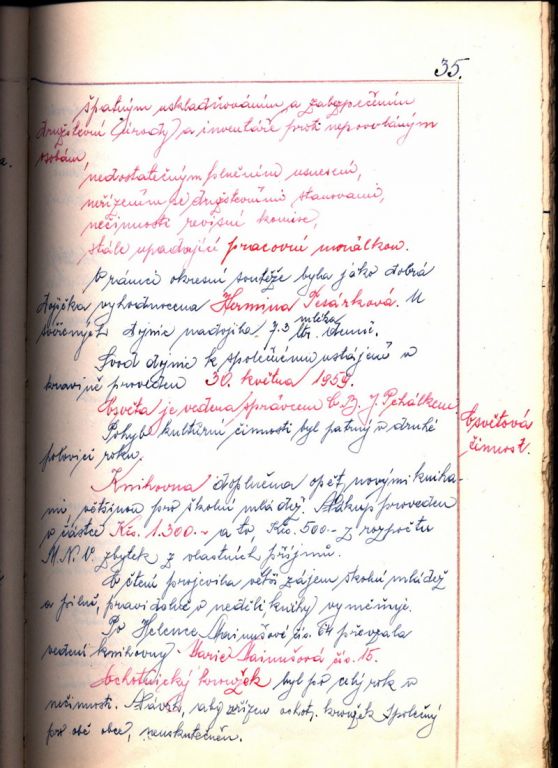 35.
špatným uskladňováním a zabezpečením
družstevní (úrody) a inventáře proti nepovolaným
osobám,
nedostatečným plněním usnesení,
neřízením se družstevními stanovami,
nečinností revisní komise,
stále upadající pracovní morálkou.
V rámci okresní soutěže byla jako dobrá
dojička vyhodnocena Hermina Pesárková. U
svěřených dojnic nadojila 7.3 ltr. mléka denně.
Svod dojnic k společnému ustájení v
kravíně proveden 30. května 1959.
Osvěta je vedena správcem O.B. J. Pehálkem.
Osvětová
činnost.
Pohyb kulturní činnosti byl patrný v druhé
polovici roku.
Knihovna doplněna opět novými kniha-
mi, většinou pro školní mládež. Nákup proveden
v částce Kčs. 1.300.- a to, Kčs. 500.- z rozpočtu
M.N.V. zbytek z vlastních příjmů.
O čtení projevila větší zájem školní mládež
a pilně, pravidelně v neděli knihy vyměňuje.
Po Helence Mainušové čís. 64 převzala
vedení knihovny Marie Mainušová čís. 15.
Ochotnický kroužek byl po celý rok v
nečinnosti. Návrh, aby zřízen ochot. kroužek společný
pro obě obce, neuskutečněn.